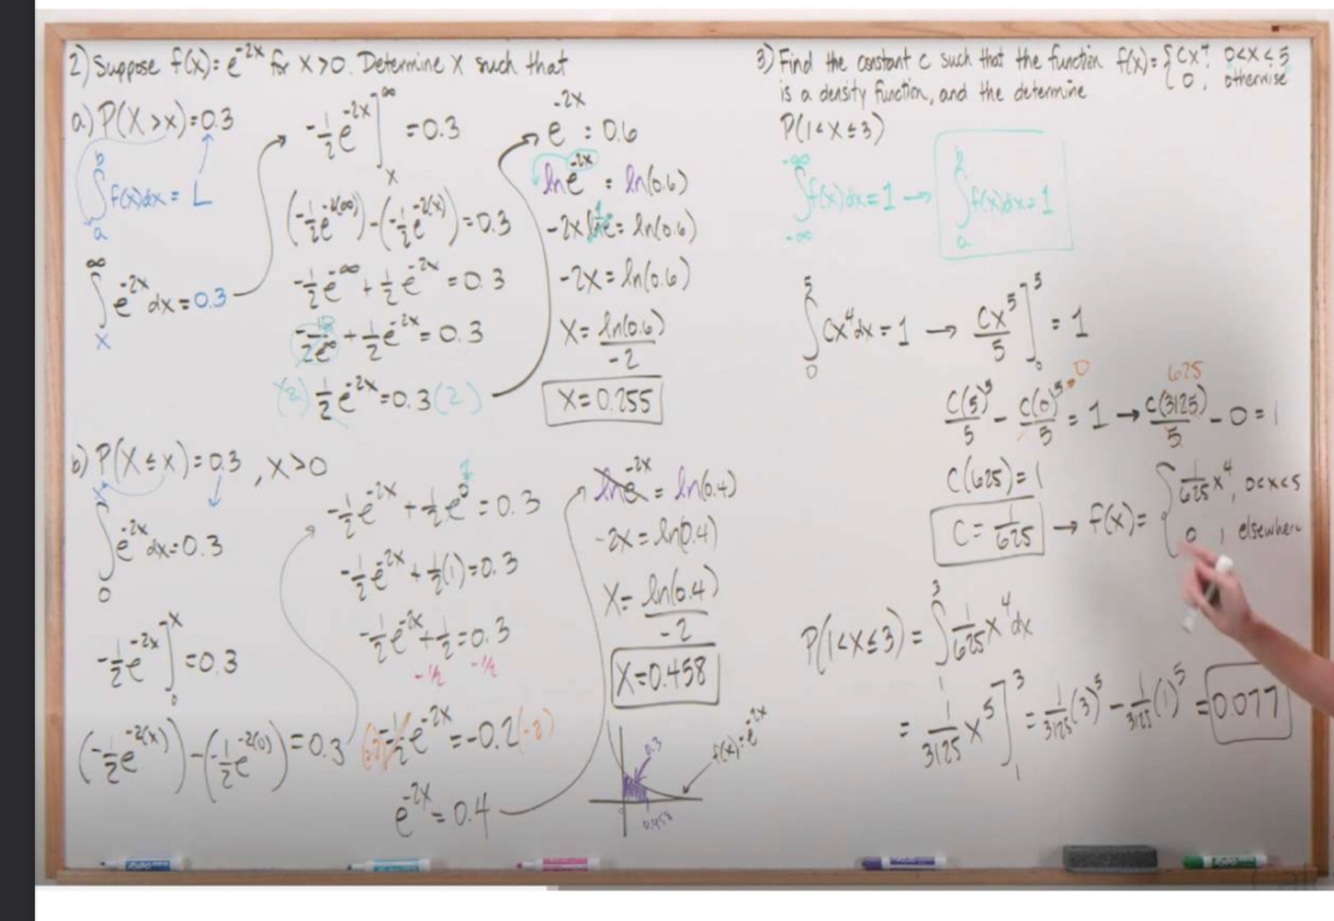 2) Suppose f(x) = e^{-2x} for x > 0. Determine x such that
a) P(X > x) = 0.3
∫_a^b f(x)dx = L
∫_x^∞ e^{-2x} dx = 0.3
-1/2 e^{-2x}]_x^∞ = 0.3
(-1/2 e^{-2(∞)}) - (-1/2 e^{-2(x)}) = 0.3
-1/2 e^{-∞} + 1/2 e^{-2x} = 0.3
-1/2e^∞ + 1/2 e^{-2x} = 0.3
(2) 1/2 e^{-2x} = 0.3 (2)
e^{-2x} = 0.6
ln e^{-2x} = ln(0.6)
-2x ln e = ln(0.6)
-2x = ln(0.6)
x = ln(0.6)/-2
x = 0.255
b) P(X ≤ x) = 0.3, x > 0
∫_0^x e^{-2x} dx = 0.3
-1/2 e^{-2x}]_0^x = 0.3
(-1/2 e^{-2(x)}) - (-1/2 e^{-2(0)}) = 0.3
-1/2 e^{-2x} + 1/2 e^0 = 0.3
-1/2 e^{-2x} + 1/2(1) = 0.3
-1/2 e^{-2x} + 1/2 = 0.3
-1/2 -1/2
(-2) -1/2 e^{-2x} = -0.2 (-2)
e^{-2x} = 0.4
ln e^{-2x} = ln(0.4)
-2x = ln(0.4)
x = ln(0.4)/-2
x = 0.458
0.3
f(x) = e^{-2x}
0.458
3) Find the constant c such that the function f(x) = { cx^4, 0 < x < 5
0, otherwise
is a density function, and the determine
P(1 < X ≤ 3)
∫_{-∞}^{-∞} f(x)dx = 1 → ∫_a^b f(x)dx = 1
∫_0^5 cx^4 dx = 1 → cx^5/5]_0^5 = 1
625
c(5)^5/5 - c(0)^5/5 = 1 → c(3125)/5 - 0 = 1
c(625) = 1
c = 1/625 → f(x) = { 1/625 x^4, 0 < x < 5
0, elsewhere
P(1 < X ≤ 3) = ∫_1^3 1/625 x^4 dx
= 1/3125 x^5]_1^3 = 1/3125 (3)^5 - 1/3125 (1)^5 = 0.077